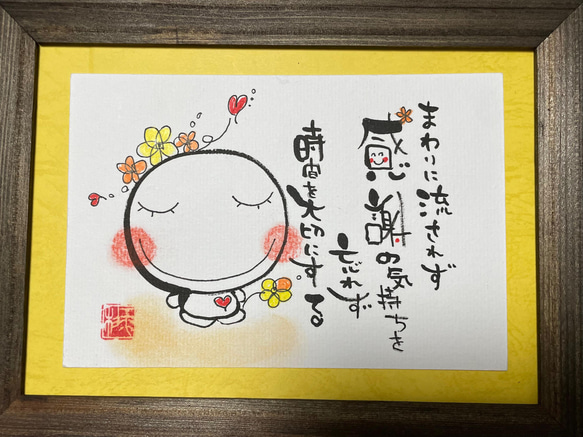 まわりに流されず
感謝の気持ちを
忘れず
時間を大切にする